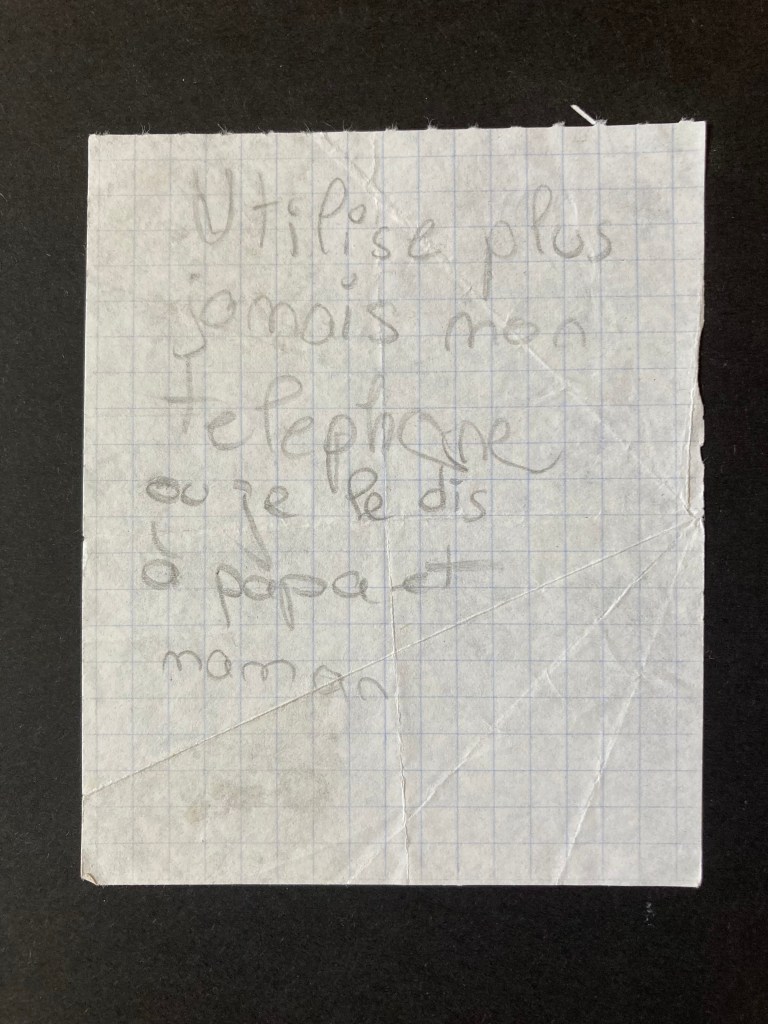 Utilise plus
jamais mon
telephone
ou je le dis
à papa et
maman